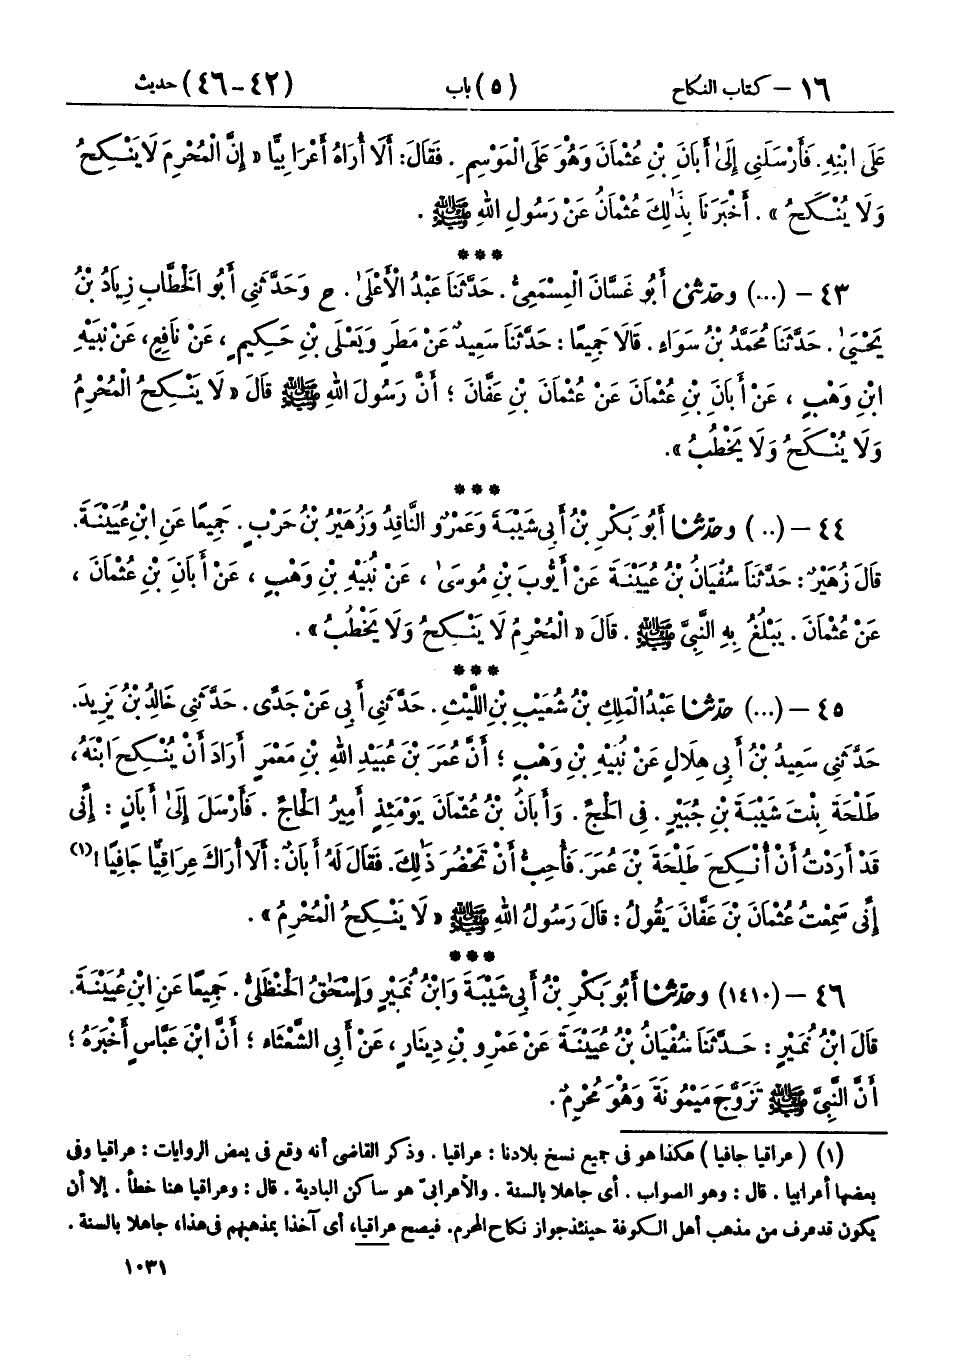 ١٦ – كتاب النكاح (٥) باب (٤٢–٤٦) حديث
عَلَى ابْنِهِ. فَأَرْسَلَنِي إِلَىٰ أَبَانَ بْنِ عُثْمَانَ وَهُوَ عَلَى الْمَوْسِمِ. فَقَالَ: أَلَا أُرَاهُ أَعْرَابِيًّا «إِنَّ الْمُحْرِمَ لَا يَنْكِحُ
وَلَا يُنْكَحُ». أَخْبَرَنَا بِذَٰلِكَ عُثْمَانُ عَنْ رَسُولِ اللهِ ﷺ.
***
٤٣ – (...) وحَدَّثَنِي أَبُو غَسَّانَ الْمِسْمَعِيُّ. حَدَّثَنَا عَبْدُ الْأَعْلَىٰ. ح وَحَدَّثَنِي أَبُو الْخَطَّابِ زِيَادُ بْنُ
يَحْيَىٰ. حَدَّثَنَا مُحَمَّدُ بْنُ سَوَاءٍ. قَالَا جَمِيعًا: حَدَّثَنَا سَعِيدٌ عَنْ مَطَرٍ وَيَعْلَى بْنِ حَكِيمٍ، عَنْ نَافِعٍ، عَنْ نُبَيْهِ
ابْنِ وَهْبٍ، عَنْ أَبَانَ بْنِ عُثْمَانَ عَنْ عُثْمَانَ بْنِ عَفَّانَ؛ أَنَّ رَسُولَ اللهِ ﷺ قَالَ «لَا يَنْكِحُ الْمُحْرِمُ
وَلَا يُنْكَحُ وَلَا يَخْطُبُ».
***
٤٤ – (..) وحَدَّثَنَا أَبُو بَكْرِ بْنُ أَبِي شَيْبَةَ وَعَمْرٌو النَّاقِدُ وَزُهَيْرُ بْنُ حَرْبٍ. جَمِيعًا عَنِ ابْنِ عُيَيْنَةَ.
قَالَ زُهَيْرٌ: حَدَّثَنَا سُفْيَانُ بْنُ عُيَيْنَةَ عَنْ أَيُّوبَ بْنِ مُوسَىٰ، عَنْ نُبَيْهِ بْنِ وَهْبٍ، عَنْ أَبَانَ بْنِ عُثْمَانَ،
عَنْ عُثْمَانَ. يَبْلُغُ بِهِ النَّبِيَّ ﷺ. قَالَ «الْمُحْرِمُ لَا يَنْكِحُ وَلَا يَخْطُبُ».
***
٤٥ – (...) حَدَّثَنَا عَبْدُ الْمَلِكِ بْنُ شُعَيْبِ بْنِ اللَّيْثِ. حَدَّثَنِي أَبِي عَنْ جَدِّي. حَدَّثَنِي خَالِدُ بْنُ يَزِيدَ.
حَدَّثَنِي سَعِيدُ بْنُ أَبِي هِلَالٍ عَنْ نُبَيْهِ بْنِ وَهْبٍ؛ أَنَّ عُمَرَ بْنَ عُبَيْدِ اللهِ بْنِ مَعْمَرٍ أَرَادَ أَنْ يُنْكِحَ ابْنَهُ،
طَلْحَةَ بِنْتَ شَيْبَةَ بْنِ جُبَيْرٍ. فِي الْحَجِّ. وَأَبَانُ بْنُ عُثْمَانَ يَوْمَئِذٍ أَمِيرُ الْحَاجِّ. فَأَرْسَلَ إِلَىٰ أَبَانٍ: إِنِّي
قَدْ أَرَدْتُ أَنْ أُنْكِحَ طَلْحَةَ بْنَ عُمَرَ. فَأُحِبُّ أَنْ تَحْضُرَ ذَٰلِكَ. فَقَالَ لَهُ أَبَانٌ: أَلَا أُرَاكَ عِرَاقِيًّا جَافِيًا!(١)
إِنِّي سَمِعْتُ عُثْمَانَ بْنَ عَفَّانَ يَقُولُ: قَالَ رَسُولُ اللهِ ﷺ «لَا يَنْكِحُ الْمُحْرِمُ».
***
٤٦ – (١٤١٠) وحَدَّثَنَا أَبُو بَكْرِ بْنُ أَبِي شَيْبَةَ وَابْنُ نُمَيْرٍ وَإِسْحَٰقُ الْحَنْظَلِيُّ. جَمِيعًا عَنِ ابْنِ عُيَيْنَةَ.
قَالَ ابْنُ نُمَيْرٍ: حَدَّثَنَا سُفْيَانُ بْنُ عُيَيْنَةَ عَنْ عَمْرِو بْنِ دِينَارٍ، عَنْ أَبِي الشَّعْثَاءِ؛ أَنَّ ابْنَ عَبَّاسٍ أَخْبَرَهُ؛
أَنَّ النَّبِيَّ ﷺ تَزَوَّجَ مَيْمُونَةَ وَهُوَ مُحْرِمٌ.
(١) (عراقيا جافيا) هكذا هو في جميع نسخ بلادنا: عراقيا. وذكر القاضي أنه وقع في بعض الروايات: عراقيا وفي
بعضها أعرابيا. قال: وهو الصواب. أي جاهلا بالسنة. والأعرابيّ هو ساكن البادية. قال: وعراقيا هنا خطأ. إلا أن
يكون قد عرف من مذهب أهل الكوفة حينئذ جواز نكاح المحرم. فيصح عراقيا، أي آخذا بمذهبهم في هذا، جاهلا بالسنة.
١٠٣١